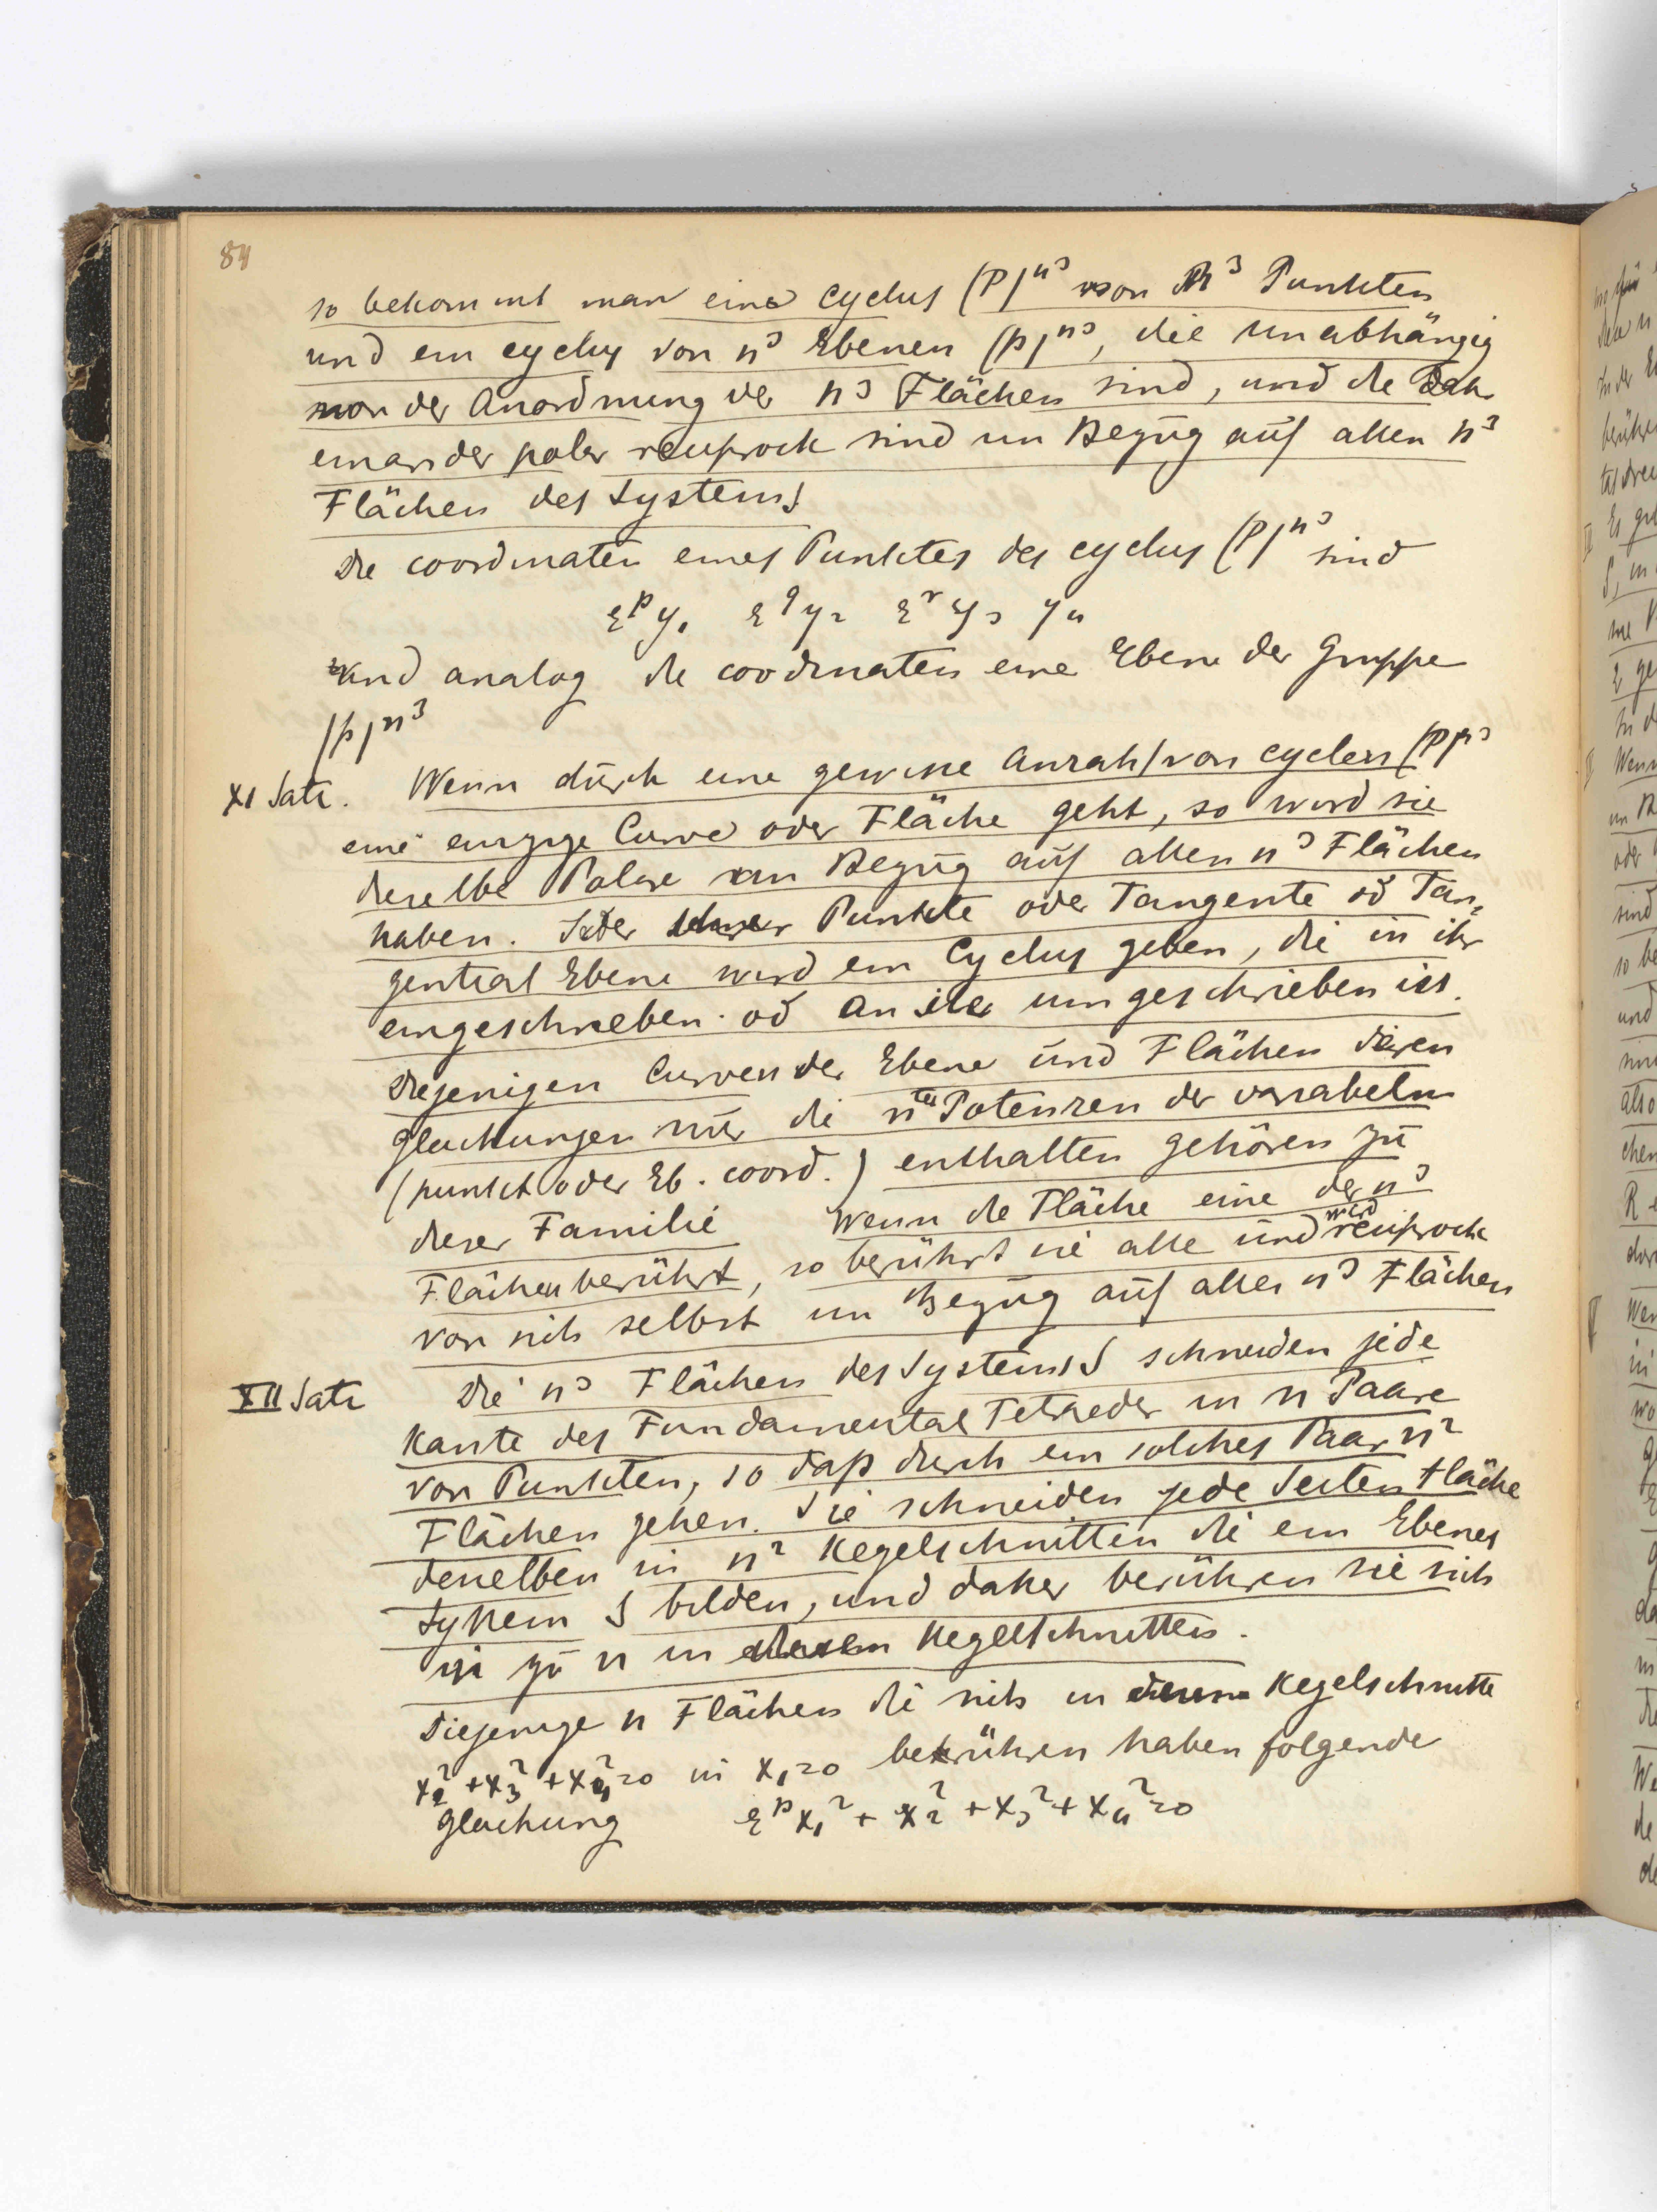 84
so bekommt man eine Cyclus (P)^n³ von n³ Punkten
und ein cyclus von n³ Ebenen (p)^n³, die unabhängig
von der Anordnung der n³ Flächen sind, und die
einander polar reciprock sind in Bezug auf allen n³
Flächen des Systems
Die coordinaten eines Punktes des cyclus (P)^n³ sind
ε^p y₁ ε^q y₂ ε^r y₃ y₄
und analog die coordinaten eine Ebene der Gruppe
(p)^n³
XI Satz. Wenn durch eine gewisse Anzahl von cyclen (P)^n³
eine einzige Curve oder Fläche geht, so wird sie
dieselbe Polare in Bezug auf allen n³ Flächen
haben. Jeder ihrer Punkte oder Tangente od Tan-
gential Ebene wird ein Cyclus geben, die in ihr
eingeschrieben od an ihr umgeschrieben ist.
Diejenigen Curven der Ebene und Flächen deren
Gleichungen nur die n^ten Potenzen der variabeln
(punkt oder Eb. coord.) enthalten gehören zu
dieser Familie Wenn die Fläche eine der n³
wird
Flächen berührt, so berührt sie alle und reciprock
von sich selbst in Bezug auf alle n³ Flächen
XII Satz Die n³ Flächen des Systems S schneiden jede
Kante des Fundamental Tetraeder in n Paare
von Punkten, so daß durch ein solches Paar n²
Flächen gehen. Sie schneiden jede Seiten Fläche
desselben in n² Kegelschnitten die ein Ebenes
System S bilden, und daher berühren sie sich
in zu n in diesen Kegelschnitten.
Diejenige n Flächen die sich in Kegelschnitte
x₂² + x₃² + x₄² = 0 in x₁ = 0 berühren haben folgende
Gleichung ε^p x₁² + x₂² + x₃² + x₄² = 0